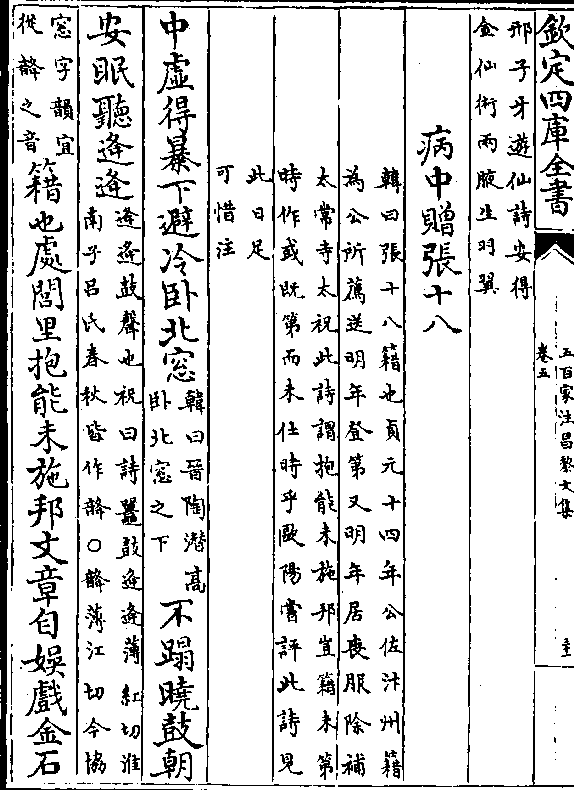 欽定四庫全書
五百家注昌黎文集
卷五
邢子牙遊仙詩安得
金仙術兩腋生羽翼
病中贈張十八
韓曰張十八籍也貞元十四年公佐汴州籍
為公所薦送明年登第又明年居喪服除補
太常寺太祝此詩謂抱能未施邦豈籍未第
時作或既第而未仕時乎歐陽嘗評此詩見
此日足
可惜注
中虛得暴下避冷卧北窓韓曰晉陶潜高卧北窓之下不蹋曉鼓朝
安眠聽逄逄逄逄鼓聲也祝曰詩鼉鼓逄逄薄紅切淮南子吕氏春秋皆作韸○韸薄江切今協
窓字韻宜從韸之音籍也處閭里抱能未施邦文章自娛戲金石